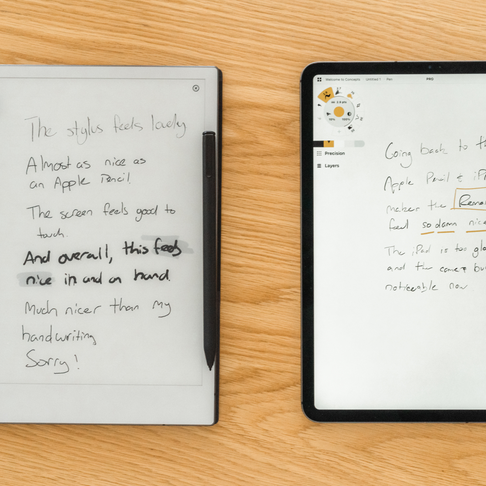 The stylus feels lovely
Almost as nice as
an Apple Pencil.
The screen feels good to
touch.
And overall, this feels
nice in and on hand
Much nicer than my
handwriting
Sorry!
Welcome to Concepts Untitled 1 PRO
Precision
Layers
Going back to th
Apple Pencil & iP
makes the Remar
feel so damn nice
The iPad is too gla
and the
noticeable now